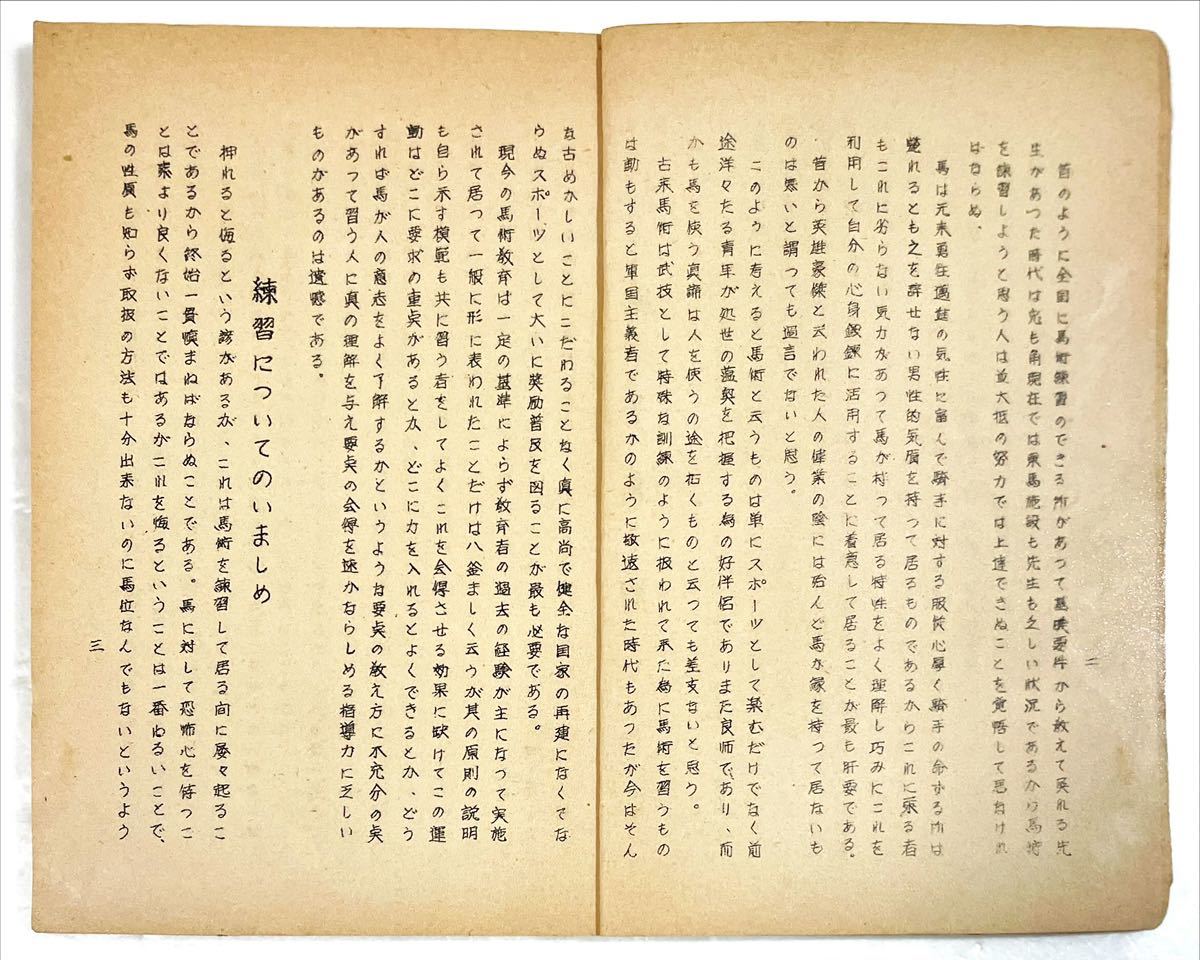 二
昔のように全国に馬術練習のできる所があつて基礎要件から教えて呉れる先
生があつた時代は兎も角現在では乗馬施設も先生も乏しい状況であるから馬術
を練習しようと思う人は並大抵の努力では上達できぬことを覚悟して居なけれ
ばならぬ、
馬は元来勇往邁進の気性に富んで騎手に対する服従心厚く騎手の命ずる所は
斃れるとも之を辞せない男性的気質を持つて居るものであるからこれに乗る者
もこれに劣らない気力があつて馬が持つて居る特性をよく理解し巧みにこれを
利用して自分の心身鍛錬に活用することに着意して居ることが最も肝要である。
昔から英雄豪傑と云われた人の偉業の陰には殆んど馬が縁を持つて居ないも
のは無いと謂つても過言でないと思う。
このように考えると馬術と云うものは単にスポーツとして楽むだけでなく前
途洋々たる青年が処世の蘊奥を把握する為の好伴侶でありまた良師であり、而
かも馬を使う真諦は人を使うの途を拓くものと云つても差支ないと思う。
古来馬術は武技として特殊な訓練のように扱われて来た為に馬術を習うもの
は動もすると軍国主義者であるかのように敬遠された時代もあつたが今はそん
な古めかしいことにこだわることなく真に高尚で健全な国家の再建になくてな
らぬスポーツとして大いに奨励普及を図ることが最も必要である。
現今の馬術教育は一定の基準によらず教育者の過去の経験が主になつて実施
されて居つて一般に形に表われたことだけは八釜ましく云うが其の原則の説明
も自ら示す模範も共に習う者をしてよくこれを会得させる効果に缺けてこの運
動はどこに要求の重点があるとか、どこに力を入れるとよくできるとか、どう
すれば馬が人の意志をよく了解するかというような要点の教え方に不充分の点
があつて習う人に真の理解を与え要点の会得を速かならしめる指導力に乏しい
ものがあるのは遺憾である。
練習についてのいましめ
狎れると侮るという諺があるが、これは馬術を練習して居る間に屡々起るこ
とであるから終始一貫慎まねばならぬことである。馬に対して恐怖心を持つこ
とは素より良くないことではあるがこれを侮るということは一番わるいことで、
馬の性質も知らず取扱の方法も十分出来ないのに馬位なんでもないというよう
三